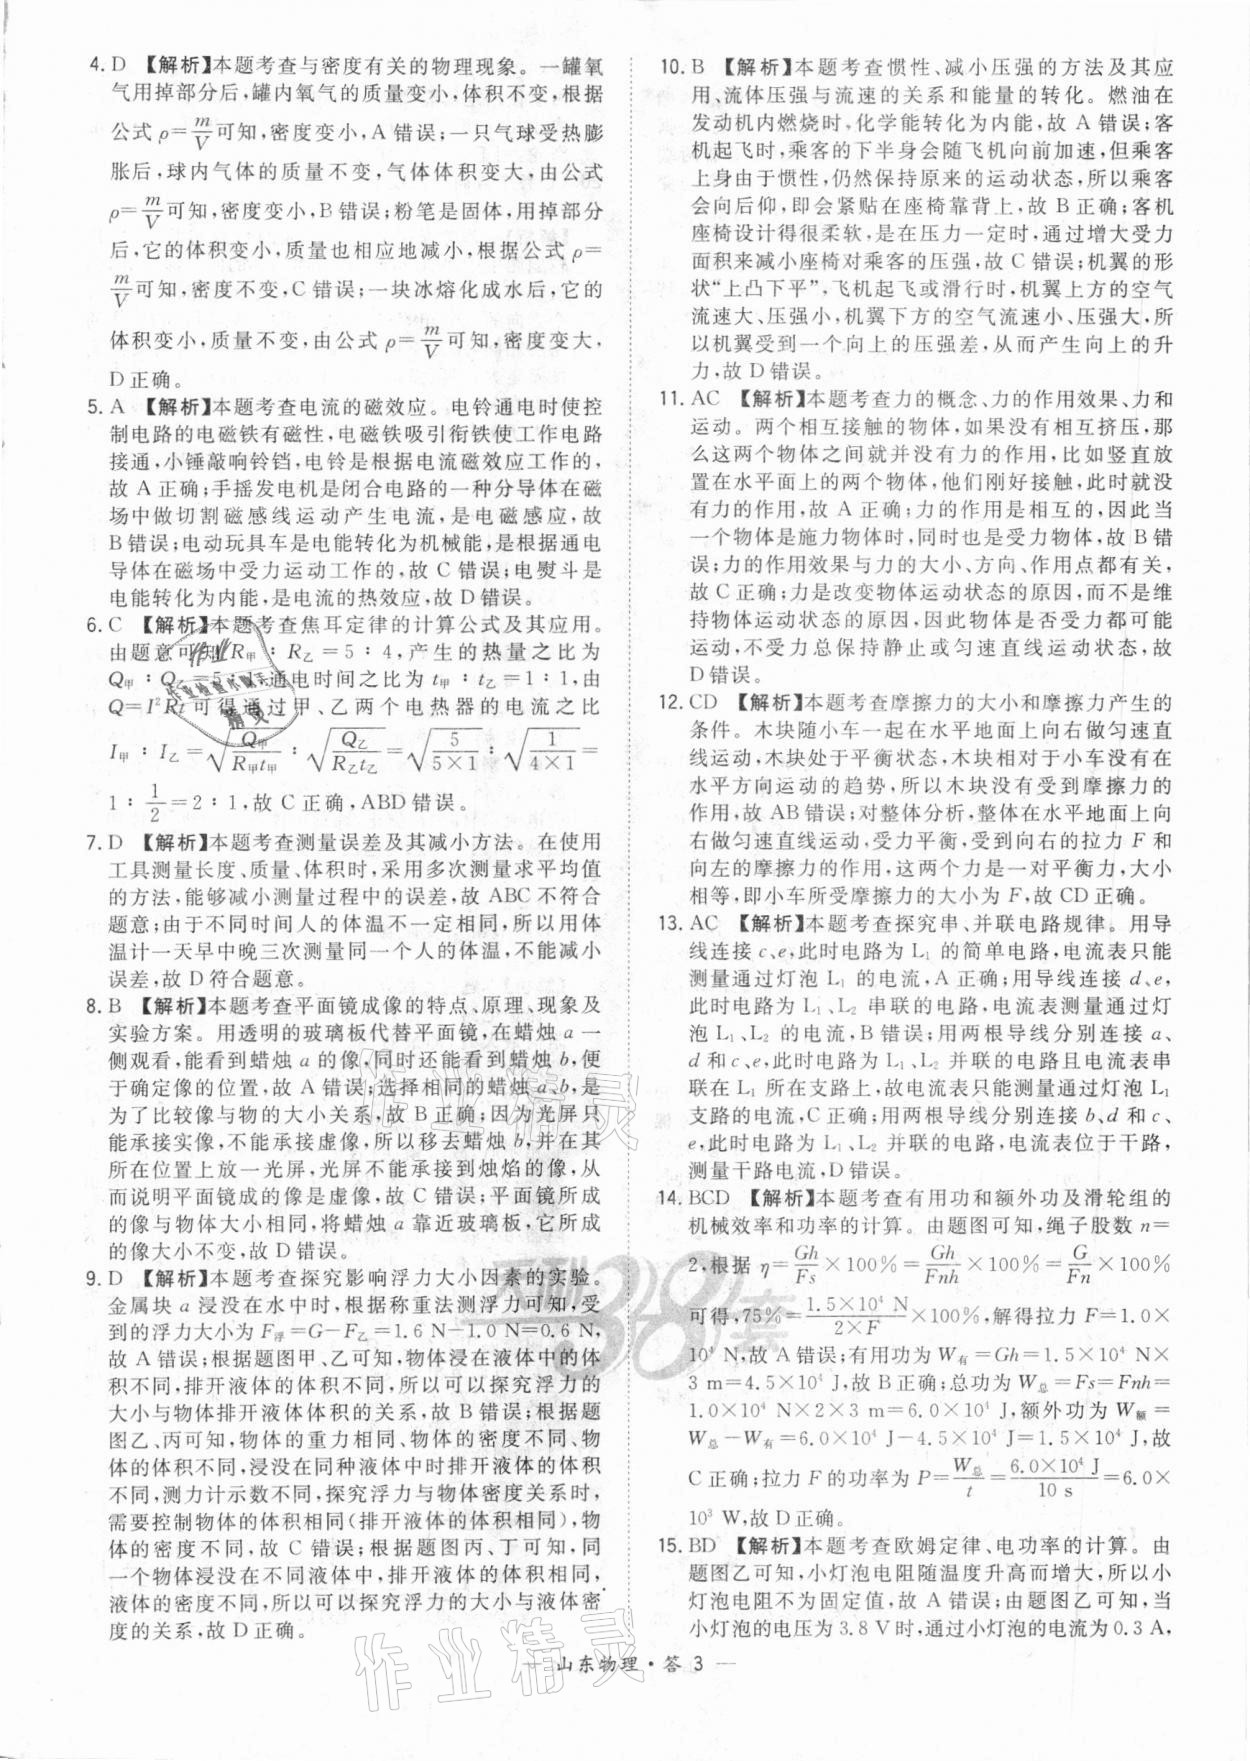 4. D 【解析】本题考查与密度有关的物理现象。一罐氧
气用掉部分后,罐内氧气的质量变小,体积不变,根据
公式 ρ=m/V可知,密度变小,A 错误;一只气球受热膨
胀后,球内气体的质量不变,气体体积变大,由公式
ρ=m/V可知,密度变小,B 错误;粉笔是固体,用掉部分
后,它的体积变小,质量也相应地减小,根据公式 ρ=
m/V可知,密度不变,C 错误;一块冰熔化成水后,它的
体积变小,质量不变,由公式 ρ=m/V可知,密度变大,
D 正确。
5. A 【解析】本题考查电流的磁效应。电铃通电时使控
制电路的电磁铁有磁性,电磁铁吸引衔铁使工作电路
接通,小锤敲响铃铛,电铃是根据电流磁效应工作的,
故 A 正确;手摇发电机是闭合电路的一种分导体在磁
场中做切割磁感线运动产生电流,是电磁感应,故
B 错误;电动玩具车是电能转化为机械能,是根据通电
导体在磁场中受力运动工作的,故 C 错误;电熨斗是
电能转化为内能,是电流的热效应,故 D 错误。
6. C 【解析】本题考查焦耳定律的计算公式及其应用。
由题意可知 R甲∶R乙=5∶4,产生的热量之比为
Q甲∶Q乙=5∶ 通电时间之比为 t甲∶t乙=1∶1,由
Q=I²Rt 可得通过甲、乙两个电热器的电流之比
I甲∶I乙=√(Q甲/R甲t甲)∶√(Q乙/R乙t乙)=√(5/5×1)∶√(1/4×1)=
1∶1/2=2∶1,故 C 正确,ABD 错误。
7. D 【解析】本题考查测量误差及其减小方法。在使用
工具测量长度、质量、体积时,采用多次测量求平均值
的方法,能够减小测量过程中的误差,故 ABC 不符合
题意;由于不同时间人的体温不一定相同,所以用体
温计一天早中晚三次测量同一个人的体温,不能减小
误差,故 D 符合题意。
8. B 【解析】本题考查平面镜成像的特点、原理、现象及
实验方案。用透明的玻璃板代替平面镜,在蜡烛 a 一
侧观看,能看到蜡烛 a 的像,同时还能看到蜡烛 b,便
于确定像的位置,故 A 错误;选择相同的蜡烛 a、b,是
为了比较像与物的大小关系,故 B 正确;因为光屏只
能承接实像,不能承接虚像,所以移去蜡烛 b,并在其
所在位置上放一光屏,光屏不能承接到烛焰的像,从
而说明平面镜成的像是虚像,故 C 错误;平面镜所成
的像与物体大小相同,将蜡烛 a 靠近玻璃板,它所成
的像大小不变,故 D 错误。
9. D 【解析】本题考查探究影响浮力大小因素的实验。
金属块 a 浸没在水中时,根据称重法测浮力可知,受
到的浮力大小为 F浮=G-F乙=1.6 N-1.0 N=0.6 N,
故 A 错误;根据题图甲、乙可知,物体浸在液体中的体
积不同,排开液体的体积不同,所以可以探究浮力的
大小与物体排开液体体积的关系,故 B 错误;根据题
图乙、丙可知,物体的重力相同、物体的密度不同、物
体的体积不同,浸没在同种液体中时排开液体的体积
不同,测力计示数不同,探究浮力与物体密度关系时,
需要控制物体的体积相同(排开液体的体积相同)、物
体的密度不同,故 C 错误;根据题图丙、丁可知,同
一个物体浸没在不同液体中,排开液体的体积相同,
液体的密度不同,所以可以探究浮力的大小与液体密
度的关系,故 D 正确。
10. B 【解析】本题考查惯性、减小压强的方法及其应
用、流体压强与流速的关系和能量的转化。燃油在
发动机内燃烧时,化学能转化为内能,故 A 错误;客
机起飞时,乘客的下半身会随飞机向前加速,但乘客
上身由于惯性,仍然保持原来的运动状态,所以乘客
会向后仰,即会紧贴在座椅靠背上,故 B 正确;客机
座椅设计得很柔软,是在压力一定时,通过增大受力
面积来减小座椅对乘客的压强,故 C 错误;机翼的形
状“上凸下平”,飞机起飞或滑行时,机翼上方的空气
流速大、压强小,机翼下方的空气流速小、压强大,所
以机翼受到一个向上的压强差,从而产生向上的升
力,故 D 错误。
11. AC 【解析】本题考查力的概念、力的作用效果、力和
运动。两个相互接触的物体,如果没有相互挤压,那
么这两个物体之间就并没有力的作用,比如竖直放
置在水平面上的两个物体,他们刚好接触,此时就没
有力的作用,故 A 正确;力的作用是相互的,因此当
一个物体是施力物体时,同时也是受力物体,故 B 错
误;力的作用效果与力的大小、方向、作用点都有关,
故 C 正确;力是改变物体运动状态的原因,而不是维
持物体运动状态的原因,因此物体是否受力都可能
运动,不受力总保持静止或匀速直线运动状态,故
D 错误。
12. CD 【解析】本题考查摩擦力的大小和摩擦力产生的
条件。木块随小车一起在水平地面上向右做匀速直
线运动,木块处于平衡状态,木块相对于小车没有在
水平方向运动的趋势,所以木块没有受到摩擦力的
作用,故 AB 错误;对整体分析,整体在水平地面上向
右做匀速直线运动,受力平衡,受到向右的拉力 F 和
向左的摩擦力的作用,这两个力是一对平衡力,大小
相等,即小车所受摩擦力的大小为 F,故 CD 正确。
13. AC 【解析】本题考查探究串、并联电路规律。用导
线连接 c、e,此时电路为 L₁ 的简单电路,电流表只能
测量通过灯泡 L₁ 的电流,A 正确;用导线连接 d、e,
此时电路为 L₁、L₂ 串联的电路,电流表测量通过灯
泡 L₁、L₂ 的电流,B 错误;用两根导线分别连接 a、
d 和 c、e,此时电路为 L₁、L₂ 并联的电路且电流表串
联在 L₁ 所在支路上,故电流表只能测量通过灯泡 L₁
支路的电流,C 正确;用两根导线分别连接 b、d 和 c、
e,此时电路为 L₁、L₂ 并联的电路,电流表位于干路,
测量干路电流,D 错误。
14. BCD 【解析】本题考查有用功和额外功及滑轮组的
机械效率和功率的计算。由题图可知,绳子股数 n=
2,根据 η=Gh/Fs×100%=Gh/Fnh×100%=G/Fn×100%
可得,75%=1.5×10⁴ N/2×F×100%,解得拉力 F=1.0×
10⁴ N,故 A 错误;有用功为 W有=Gh=1.5×10⁴ N×
3 m=4.5×10⁴ J,故 B 正确;总功为 W总=Fs=Fnh=
1.0×10⁴ N×2×3 m=6.0×10⁴ J,额外功为 W额=
W总-W有=6.0×10⁴ J-4.5×10⁴ J=1.5×10⁴ J,故
C 正确;拉力 F 的功率为 P=W总/t=6.0×10⁴ J/10 s=6.0×
10³ W,故 D 正确。
15. BD 【解析】本题考查欧姆定律、电功率的计算。由
题图乙可知,小灯泡电阻随温度升高而增大,所以小
灯泡电阻不为固定值,故 A 错误;由题图乙可知,当
小灯泡的电压为 3.8 V 时,通过小灯泡的电流为 0.3 A,
— 山东物理·答 3 —
作业精灵
天利38套
作业精灵
作业
作业检查小助手
精灵